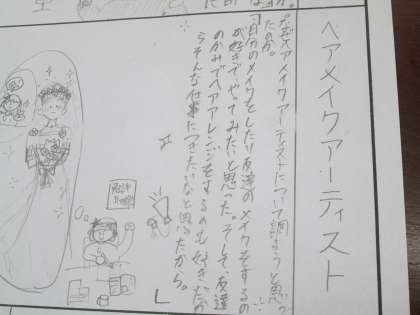 ヘアメイクアーティスト
なぜヘアメイクアーティストについて調べようと思っ
たのか。
「自分のメイクをしたり友達のメイクをするの
が好きでやってみたいと思った。そして、友達
のかみでヘアアレンジをするのも好きだか
らそんな仕事につきたいなと思ったから。